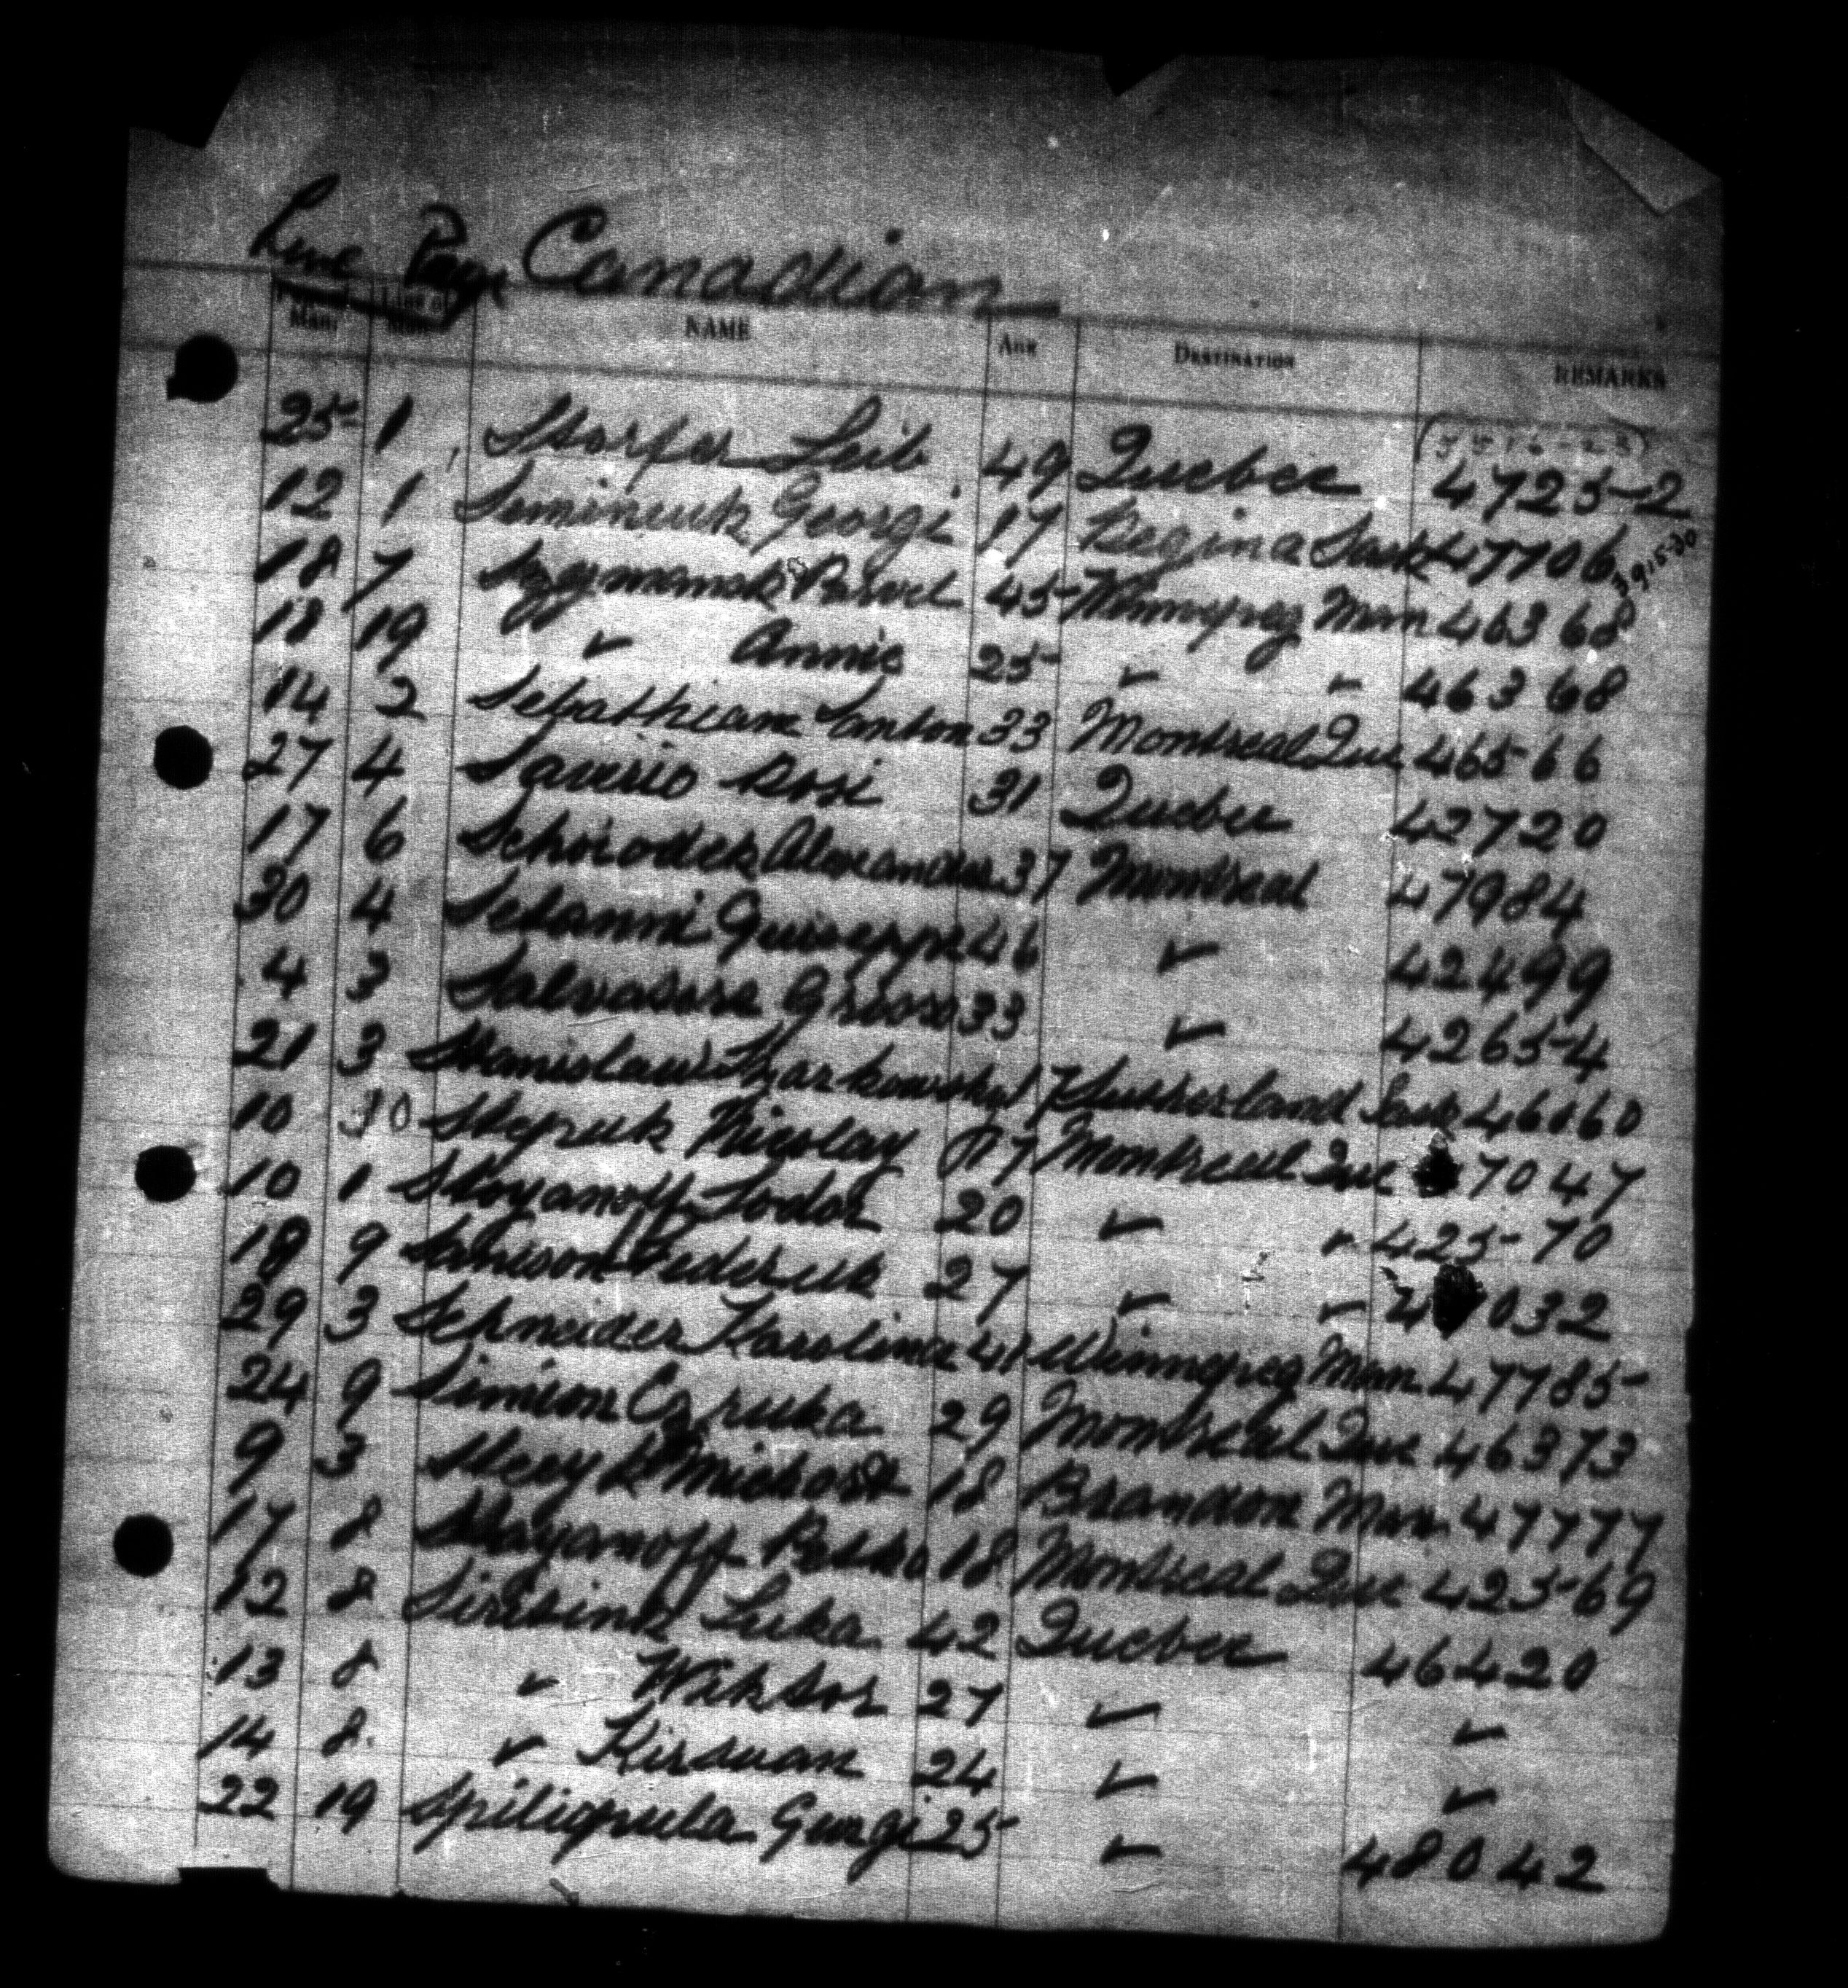 Line Page Canadian
NAME AGE DESTINATION REMARKS
25 1 Storfer Leib 49 Quebec 47252
12 1 Semineuk Georgi 17 Regina Sask 47706
18 7 Szymanak Pawel 45 Winnipeg Man 46368
18 19 " Annie 25 " " 46368
14 2 Sebathiam Santon 33 Montreal Que 46566
27 4 Saverio Rosi 31 Quebec 42720
17 6 Schroder Alexander 37 Montreal 47984
30 4 Setanni Guiseppe 46 " 42499
4 3 Salvatore Grioso 33 " 42654
21 3 Stanislaw 17 Sutherland Sask 46160
10 30 Stepuk Nicolay 17 Montreal Que 7047
10 1 Stoyanoff Todor 20 " " 42570
18 9 27 " " 4 032
29 3 Schneider Karolina 41 Winnipeg Man 47785
24 9 Simion 29 Montreal Que 46373
9 3 18 Brandon Man 47777
17 8 Stayanoff Petko 18 Montreal Que 42569
12 8 Luka 42 Quebec 46420
13 8 " Wiktor 27 " "
14 8 " 24 " "
22 19 Georgi 25 " 48042